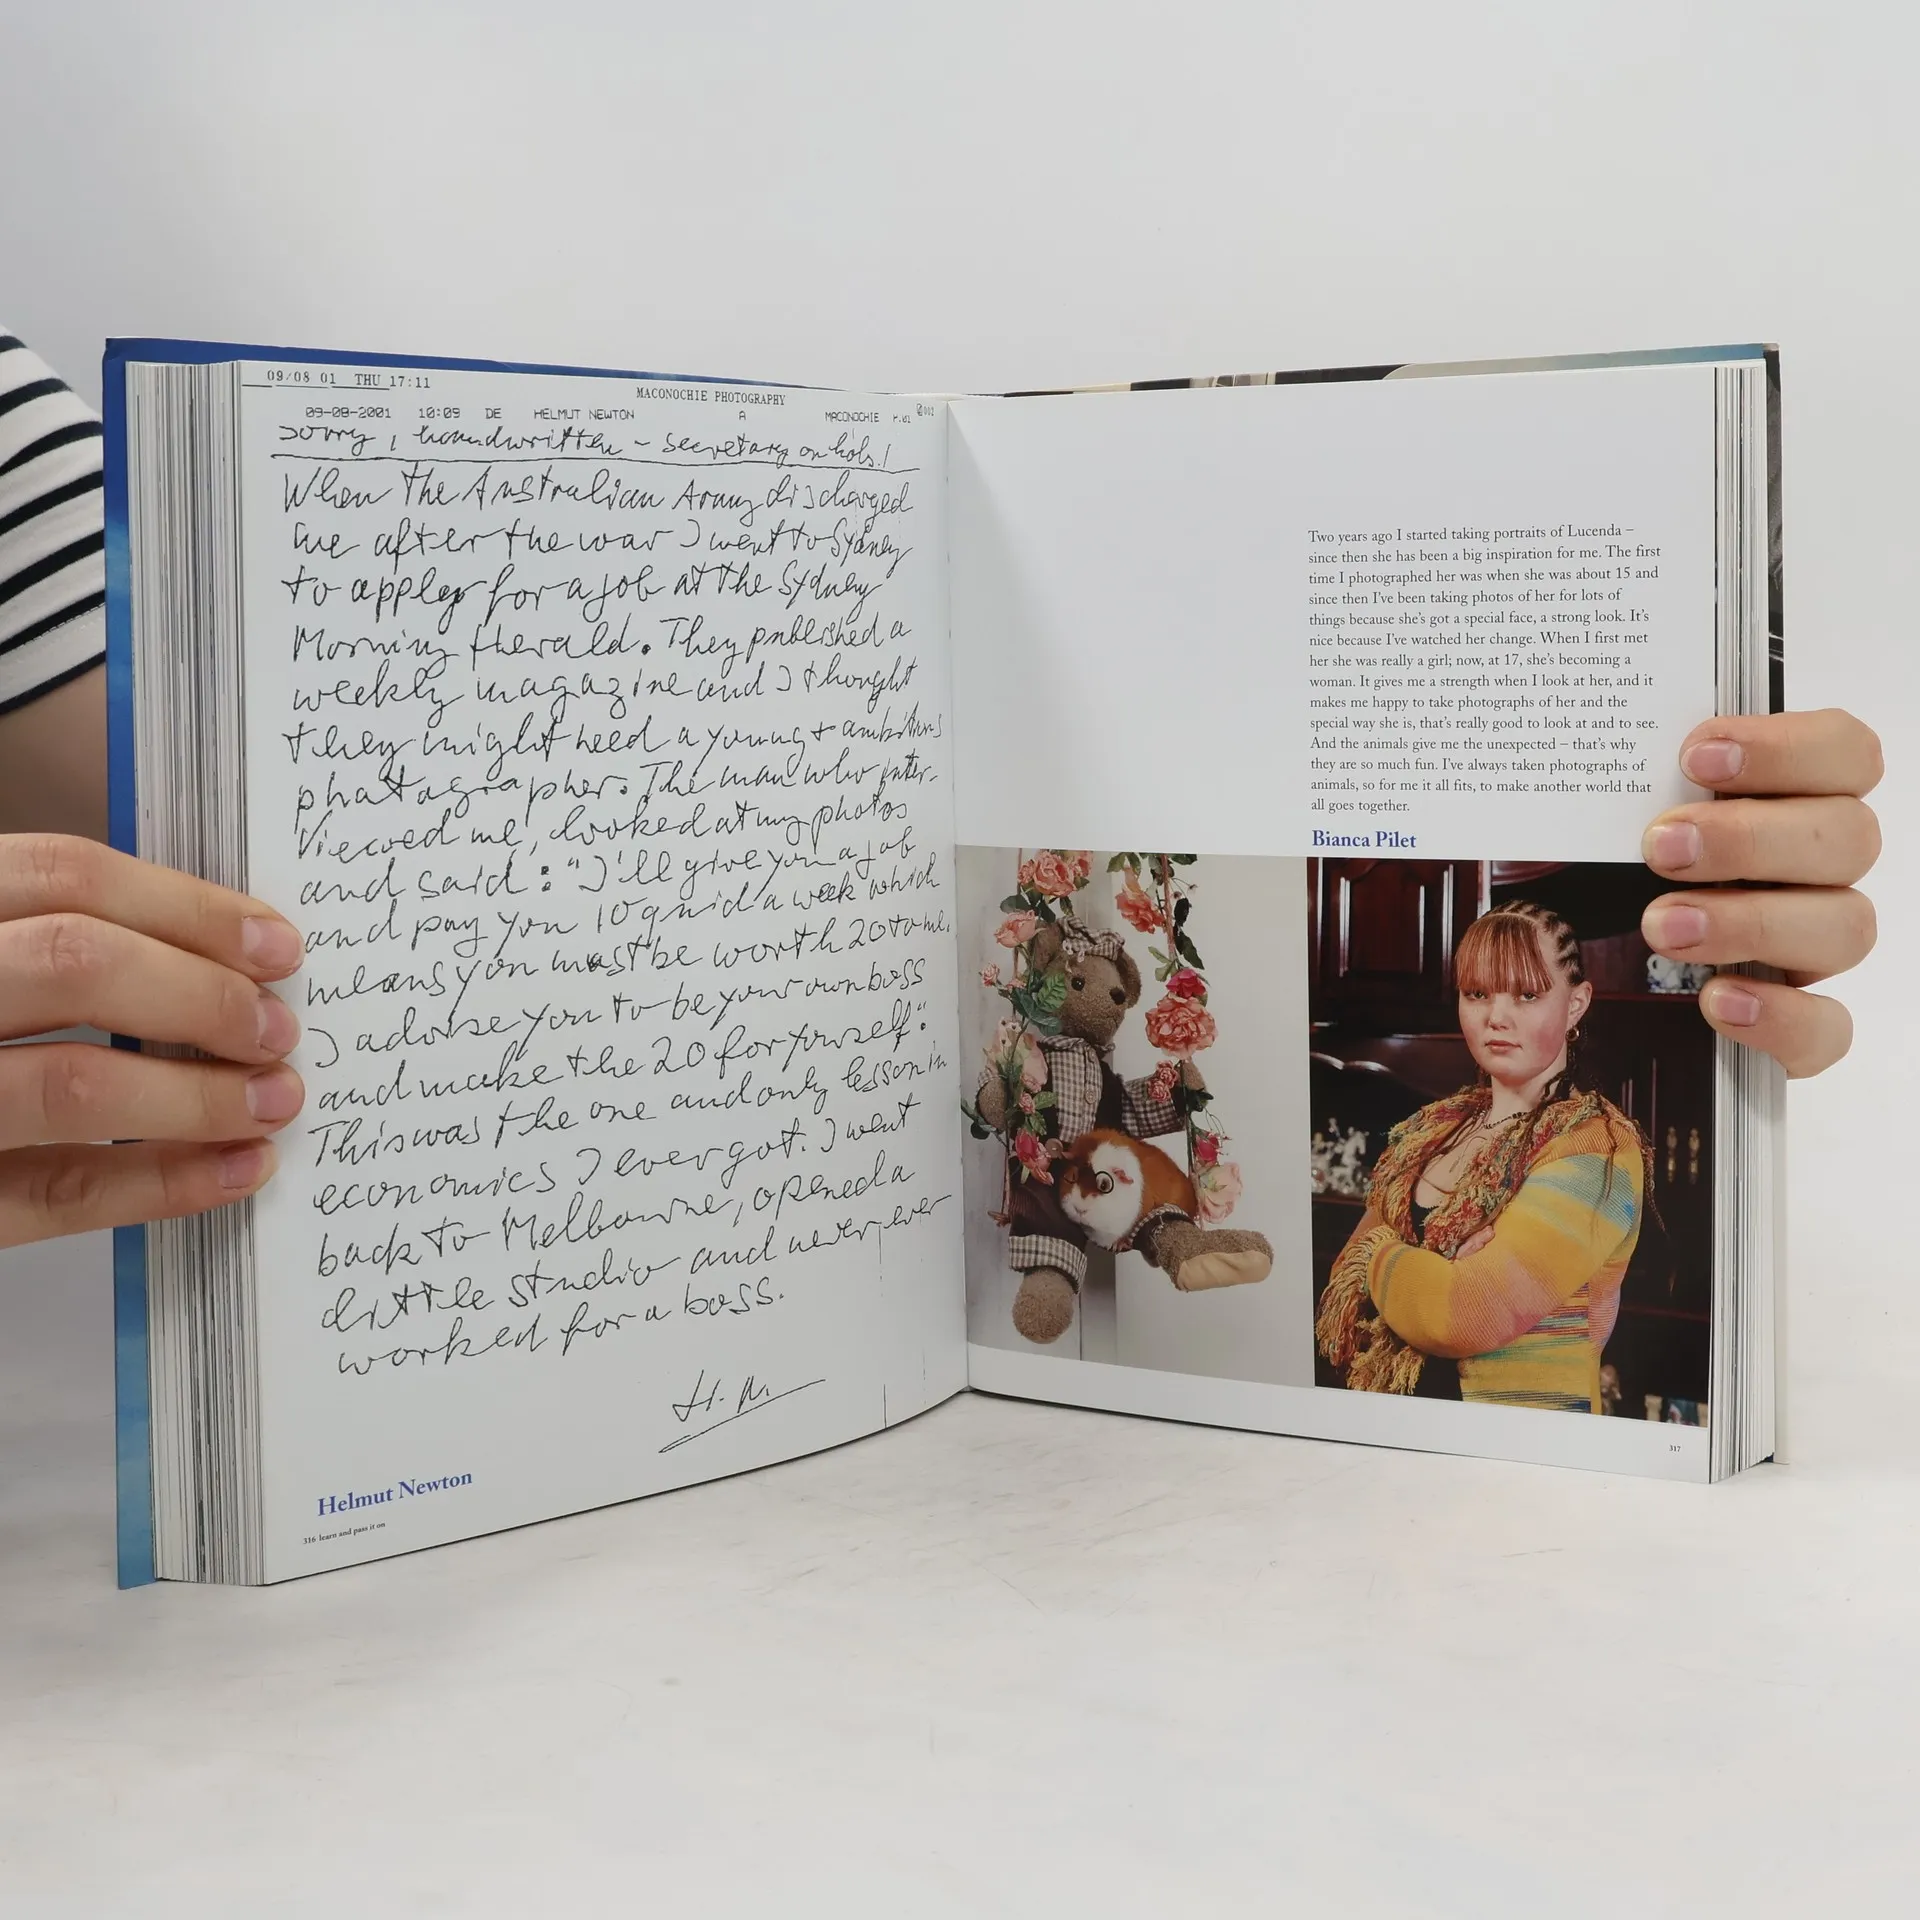 09/08 01 THU 17:11
MACONOCHIE PHOTOGRAPHY
09-08-2001 10:09 DE HELMUT NEWTON A MACONOCHIE P.01 002
Sorry, handwritten - secretary on hols!
When the Australian Army discharged
me after the war I went to Sydney
to apply for a job at the Sydney
Morning Herald. They published a
weekly magazine and I thought
they might need a young + ambitious
photographer. The man who inter-
viewed me, looked at my photos
and said: "I'll give you a job
and pay you 10 quid a week which
means you must be worth 20 to me.
I advise you to be your own boss
and make the 20 for yourself."
This was the one and only lesson in
economics I ever got. I went
back to Melbourne, opened a
little studio and never, ever
worked for a boss.
H. N.
Helmut Newton
316 learn and pass it on
Two years ago I started taking portraits of Lucenda –
since then she has been a big inspiration for me. The first
time I photographed her was when she was about 15 and
since then I've been taking photos of her for lots of
things because she's got a special face, a strong look. It's
nice because I've watched her change. When I first met
her she was really a girl; now, at 17, she's becoming a
woman. It gives me a strength when I look at her, and it
makes me happy to take photographs of her and the
special way she is, that's really good to look at and to see.
And the animals give me the unexpected – that's why
they are so much fun. I've always taken photographs of
animals, so for me it all fits, to make another world that
all goes together.
Bianca Pilet
317